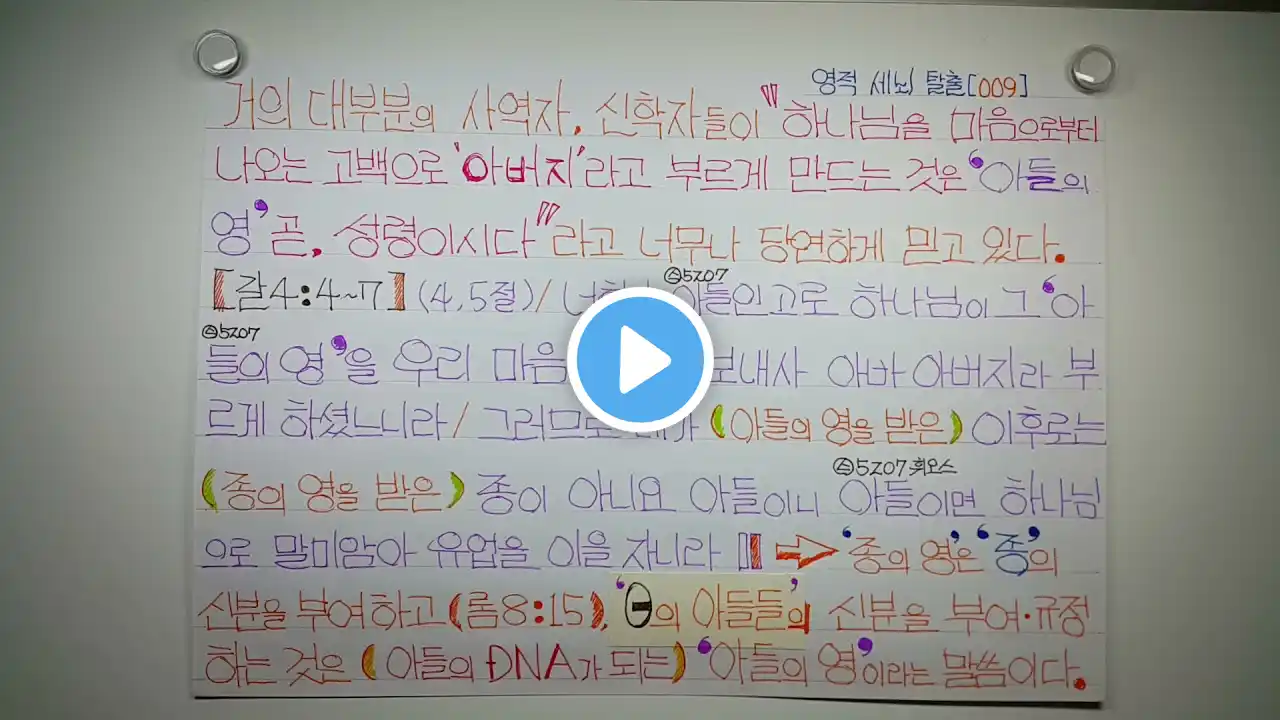 영적 세뇌 탈출[009]
거의 대부분의 사역자, 신학자들이 "하나님을 마음으로부터
나오는 고백으로 '아버지'라고 부르게 만드는 것은 '아들의
영' 곧, 성령이시다"라고 너무나 당연하게 믿고 있다.
[갈4:4~7] (4,5절)/ 아들인고로 하나님이 그 '아
들의 영'을 우리 마음 보내사 아바 아버지라 부
르게 하셨느니라/ 그러므로 (아들의 영을 받은) 이후로는
(종의 영을 받은) 종이 아니요 아들이니 아들이면 하나님
5207
5207
5207 휘오스
으로 말미암아 유업을 이을 자니라 ⇨ '종의 영'은 '종'의
신분을 부여하고 (롬8:15), 'Θ의 아들들'의 신분을 부여·규정
하는 것은 (아들의 DNA가 되는) '아들의 영'이라는 말씀이다.